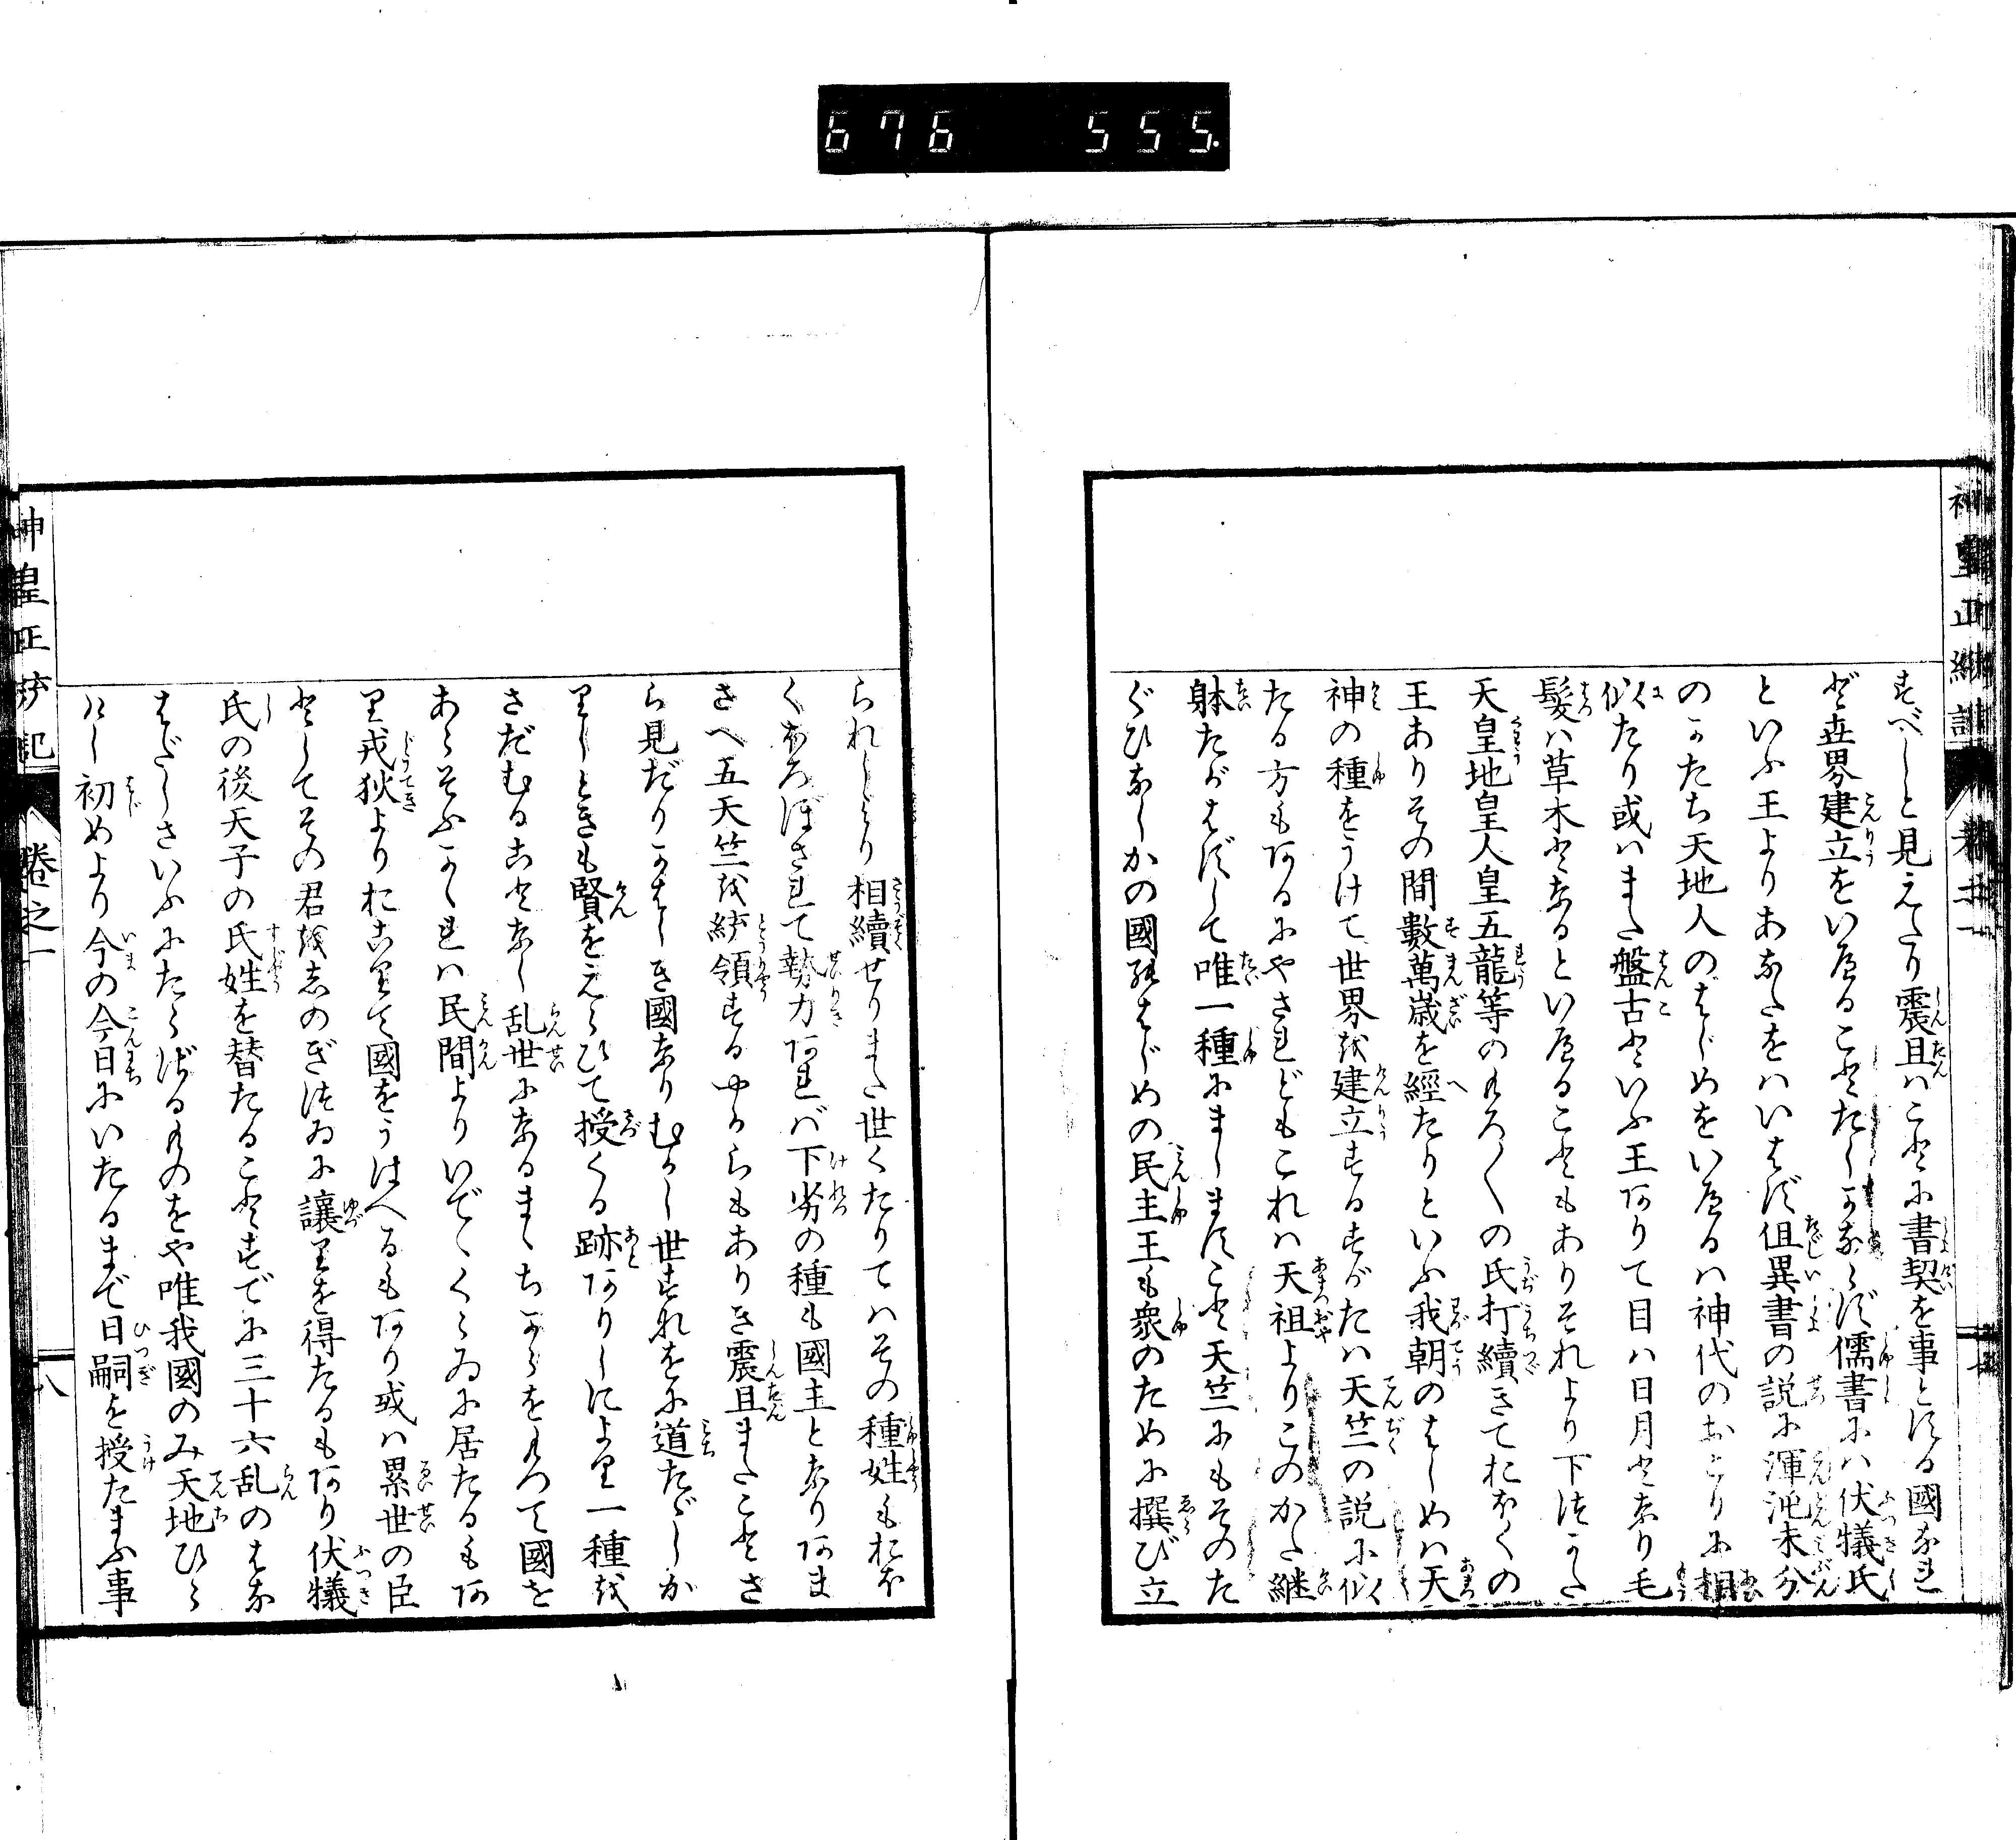 676 555.
神皇正統記 卷之一
すべしと見えたり震旦ハことに書契を事とする國なれ
ど世界建立をいへることたしかならず儒書にハ伏犠氏
といふ王よりあなたをハいはず但異書の説に渾沌未分
のかたち天地人のはじめをいへるハ神代のおこりに相
似たり或ハまた盤古といふ王ありて目ハ日月となり毛
髪ハ草木となるといへることもありそれより下つかた
天皇地皇人皇五龍等のもろ〱の氏打續きておほくの
王ありその間數萬歳を經たりといふ我朝のはしめハ天
神の種をうけて世界を建立するすがたハ天竺の説に似
たる方もあるにやされどもこれハ天祖よりこのかた継
躰たがはずして唯一種にましますこと天竺にもそのた
ぐひなしかの國のはじめの民主王も衆のために撰び立
られしより相續せりまた世くたりてハその種姓もおほ
くほろぼされて勢力あれバ下劣の種も國主となりあま
さへ五天竺を統領するやからもありき震旦またことさ
ら見だりがはしき國なりむかし世すなをに道たゞしか
りしときも賢をえらひて授くる跡ありしにより一種を
さだむることなし乱世になるまゝちからをもつて國を
あらそふかゝれハ民間よりいでゝくらゐに居たるもあ
り戎狄よりおこりて國をうはへるもあり或ハ累世の臣
としてその君を志のぎつゐに讓りを得たるもあり伏犠
氏の後天子の氏姓を替たることすでに三十六乱のはな
はだしさいふにたらざるものをや唯我國のみ天地ひら
けし初めより今の今日にいたるまで日嗣を授たまふ事
神皇正統記 卷之一 八